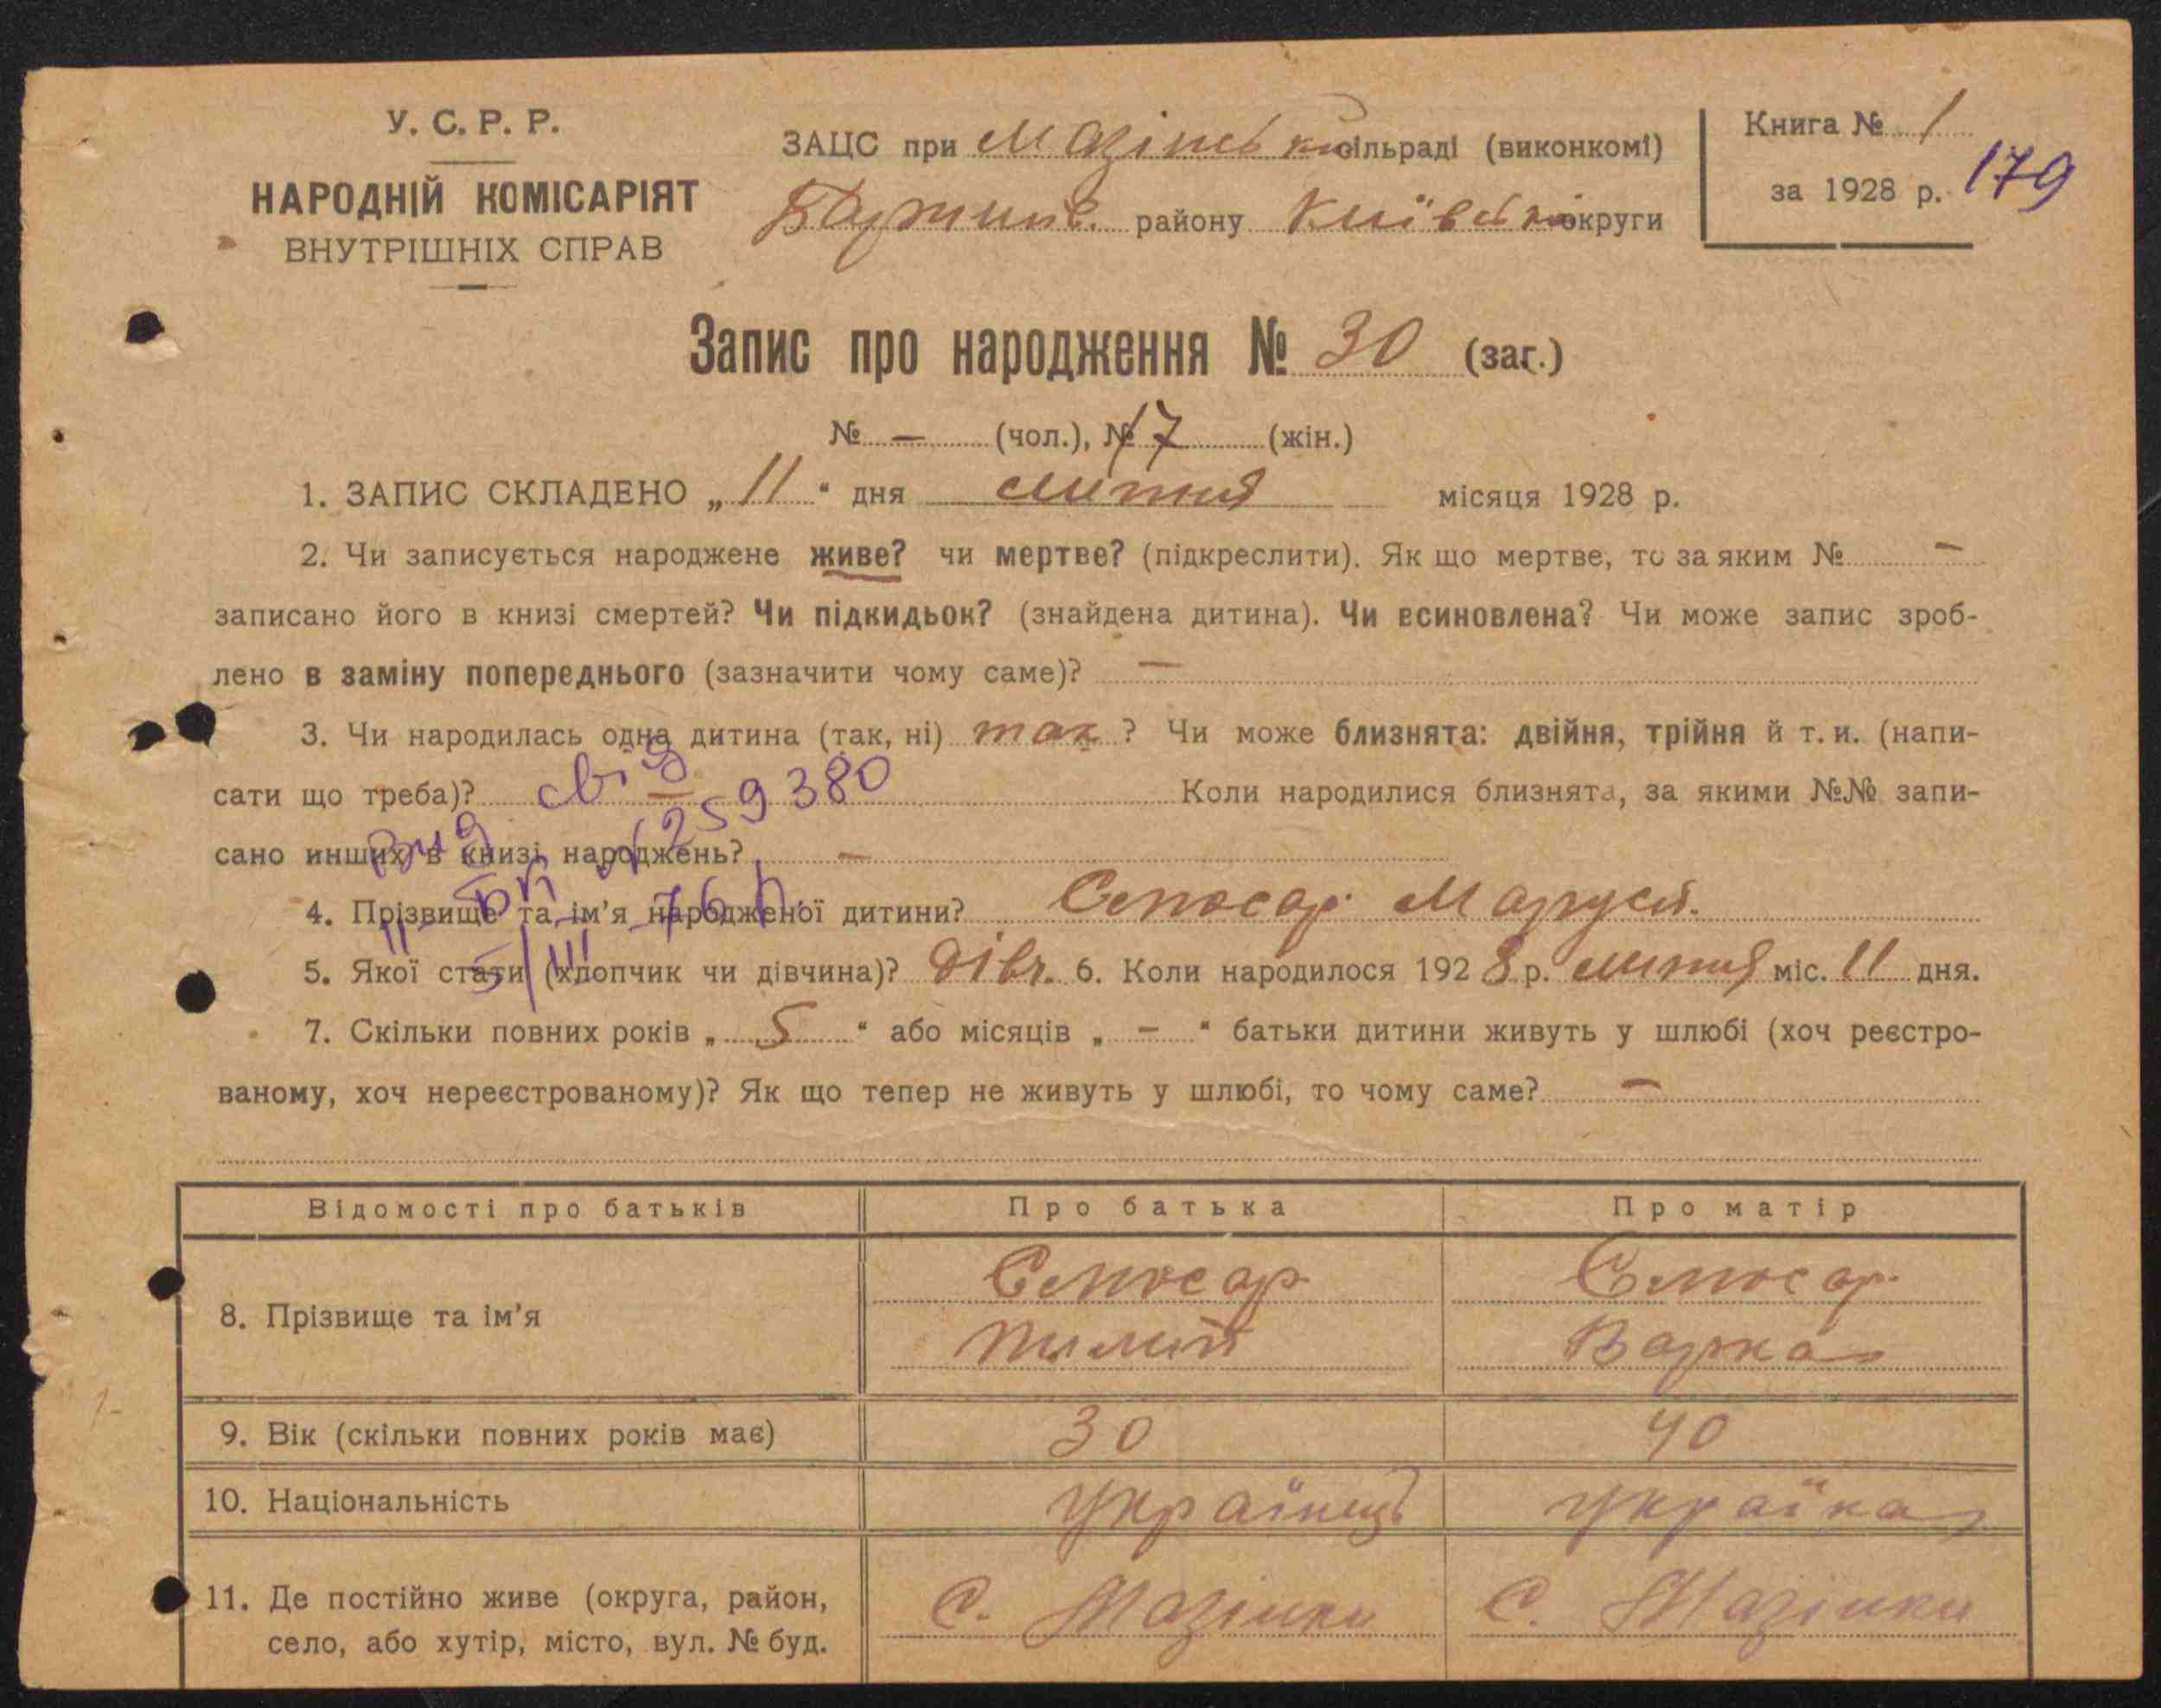 У. С. Р. Р.
НАРОДНІЙ КОМІСАРІЯТ
ВНУТРІШНІХ СПРАВ
ЗАЦС при Мазінській сільраді (виконкомі)
району Київської округи
Книга № 1
за 1928 р. 179
Запис про народження № 30 (заг.)
№ — (чол.), № 17 (жін.)
1. ЗАПИС СКЛАДЕНО „ 11 “ дня липня місяця 1928 р.
2. Чи записується народжене живе? чи мертве? (підкреслити). Як що мертве, то за яким № —
записано його в книзі смертей? Чи підкидьок? (знайдена дитина). Чи всиновлена? Чи може запис зроб-
лено в заміну попереднього (зазначити чому саме)? —
3. Чи народилась одна дитина (так, ні) так ? Чи може близнята: двійня, трійня й т. и. (напи-
сати що треба)? — Коли народилися близнята, за якими №№ запи-
сано инших в книзі народжень? —
свід
вид II-БК № 259380
5/III-76 р.
4. Прізвище та ім’я народженої дитини? Слюсар Маруся.
5. Якої стати (хлопчик чи дівчина)? дівч. 6. Коли народилося 192 8 р. липня міс. 11 дня.
7. Скільки повних років „ 5 “ або місяців „ — “ батьки дитини живуть у шлюбі (хоч реєстро-
ваному, хоч нереєстрованому)? Як що тепер не живуть у шлюбі, то чому саме? —
Відомості про батьків Про батька Про матір
8. Прізвище та ім’я
Слюсар Слюсар
Варка
9. Вік (скільки повних років має) 30 40
10. Національність українець українка
11. Де постійно живе (округа, район,
село, або хутір, місто, вул. № буд.
с. Мазінки с. Мазінки